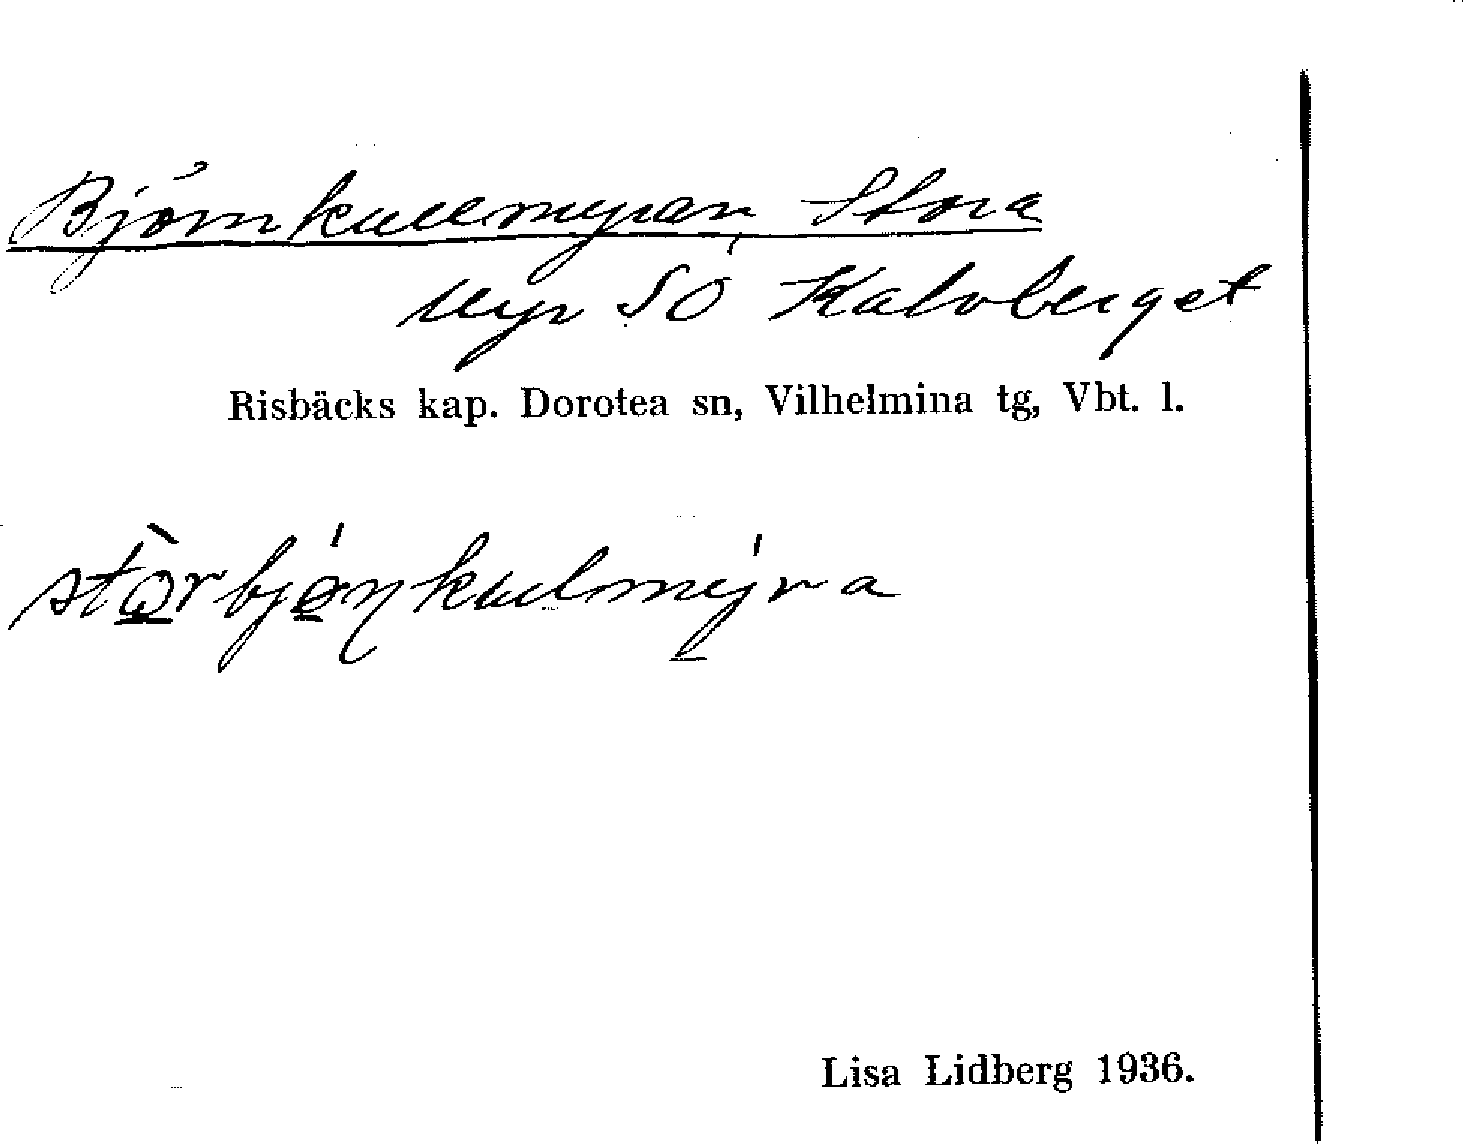 Björnkullmyran, Stora
Myr SÖ Kalvberget
Risbäcks kap. Dorotea sn, Vilhelmina tg, Vbt. l.
stòrbjǿŋkulmýra
Lisa Lidberg 1936.